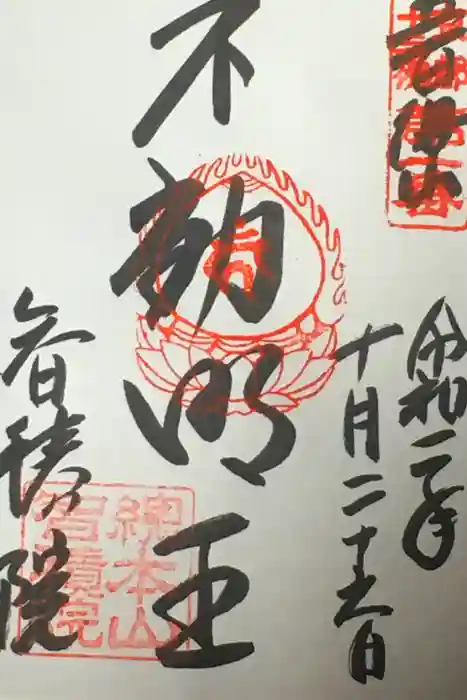 奉拝
令和二年
十月二十六日
不動明王
智積院
總本山
智積院